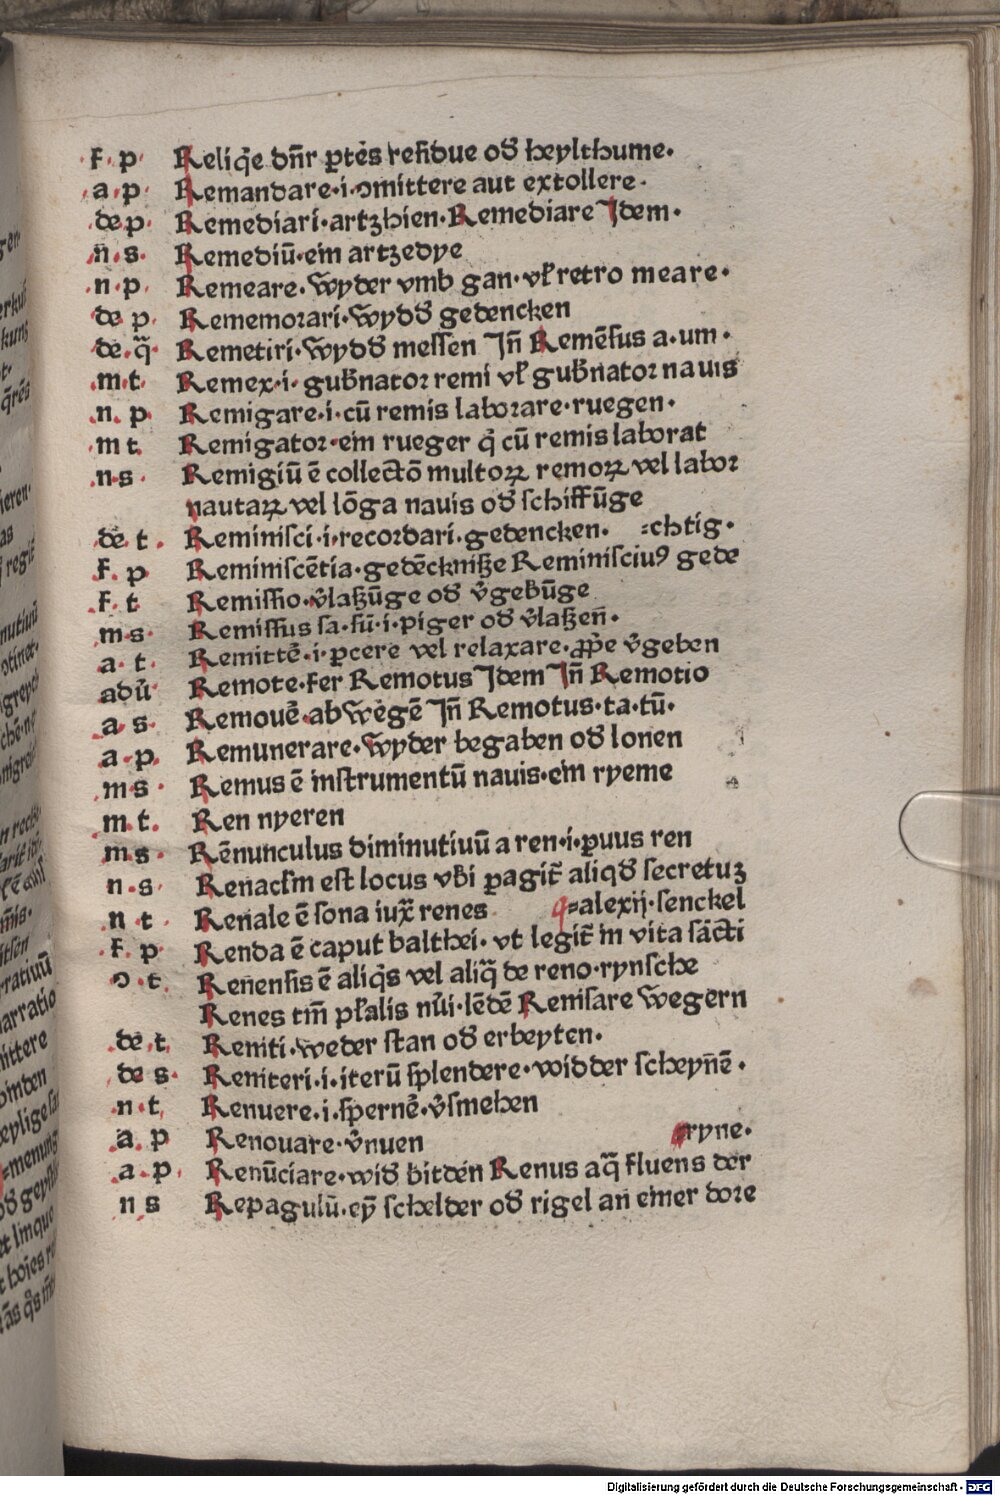 f· p· Reliqͤe dn̄r ꝑtes resi͂due od̾ heylthume·
·a·p· Remandare·i·ↄmittere aut extollere·
de·p· Remediari·artzhien·Remediare Jdem·
·n̄·s· Remediū·ein artzedye
·n·p· Remeare·Wyder vmb gan·vł retro meare·
de p· Rememorari·Wyd̾ gedencken
de·q̄· Remetiri·Wyd̾ messen Jn̄ Remēsus a·um·
·m·t· Remex·i·gub̾nator remi vł gub̾nator nauis
·n·p· Remigare·i·cū remis laborare·ruegen·
m t· Remigator·ein rueger q̇ cū remis laborat
·n·s· Remigiū ē collectō multoꝝ remoꝝ vel labor
nautaꝝ vel lōga nauis od̾ schiffūge
·de·t· Reminisci·i·recordari·gedencken· =chtig·
f·p· Reminiscētia·gedēckniße Reminisciuꝰ gede
f·t· Remissio·v̾laßūge od̾ v̾gebūge
m·s· Remissus sa·sū·i·piger od̾ v̾laßen̄·
a·t· Remittē·i·ꝑcere vel relaxare·ꝓpe v̾geben
adu̾ Remote·fer Remotus Jdem Jn̄ Remotio
·a·s· Remouē·abwegē Jn̄ Remotus·ta·tū·
·a·p· Remunerare·Wyder begaben od̾ lonen
·m·s· Remus ē instrumentū nauis·ein ryeme
·m·t· Ren nyeren
·m·s· Rēnunculus diminutiuū a ren·i·ꝑuus ren
n·s· Renacłm est locus vbi ꝑagit̄ aliqd̾ secretuz
n t· Renale ē sona iux̄ renes =alexij·senckel
·f·p Renda ē caput balthei·vt legit̄ in vita sācti
ↄ·t· Renensis ē aliq̇s vel aliq̄ de reno·rynsche
Renes tm̄ płalis nu̾i·lēdē Renisare Wegern
de·t· Reniti·weder stan od̾ erbeyten·
de s· Reniteri·i·iterū splendere·widder scheyn̄ē·
·n·t· Renuere·i·spernē·v̾smehen
·a·p Renouare·v̾nuen =ryne·
·a·p· Renūciare·wid̾ bitden Renus aq̄ fluens der
n s Repagulū·ey̅ schelder od̾ rigel an einer dore
Digitalisierung gefördert durch die Deutsche Forschungsgemeinschaft - DFG